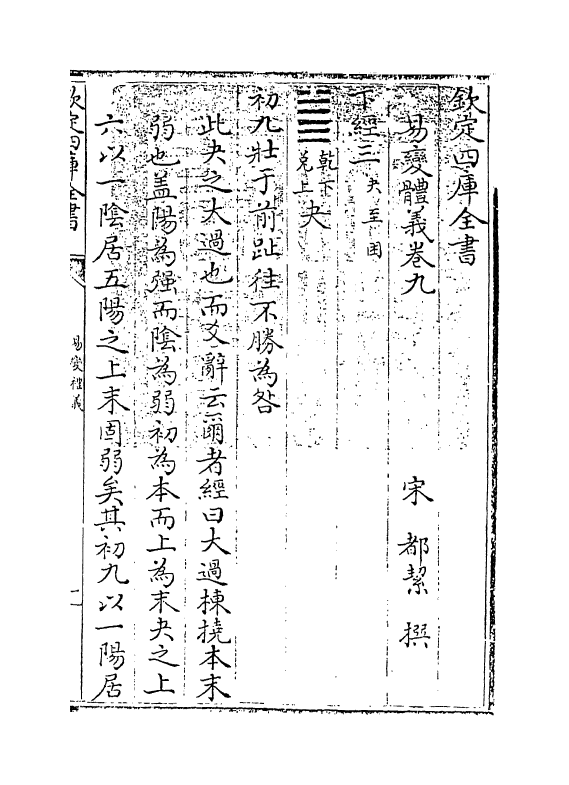 欽定四庫全書
易變體義卷九
宋 都絜 撰
下經三 夬至困
乾下
兌上
夬
初九壯于前趾往不勝為咎
此夬之大過也而爻辭云爾者經曰大過棟撓本末
弱也盖陽為强而陰為弱初為本而上為末夬之上
六以一陰居五陽之上末固弱矣其初九以一陽居
欽定四庫全書
易變體義